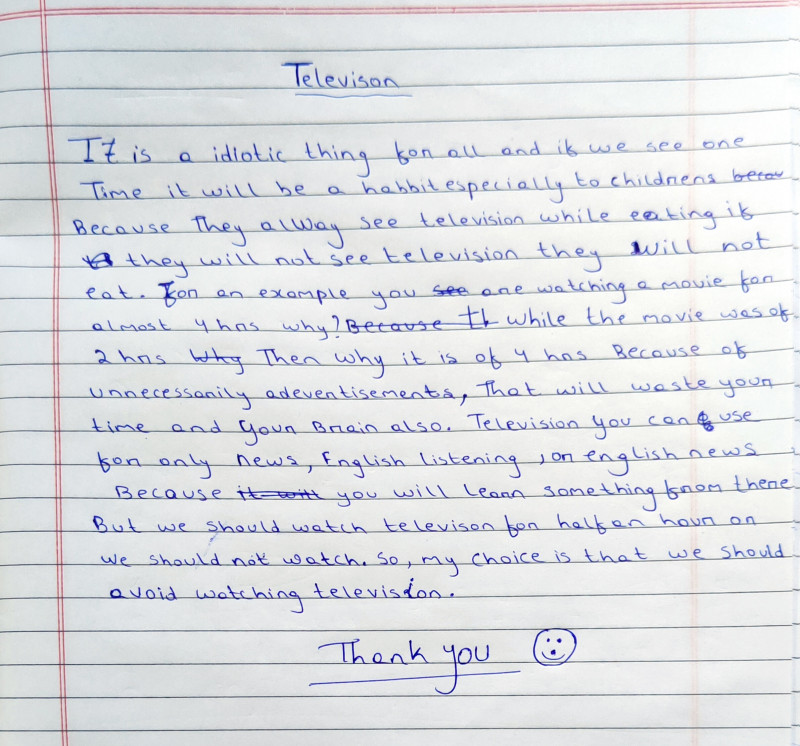 Televison
It is a idiotic thing for all and if we see one
Time it will be a habbit especially to childrens becau
Because They alway see television while eating if
they will not see television they will not
eat. For an example you see are watching a movie for
almost 4 hrs why? Because It while the movie was of
2 hrs Why Then why it is of 4 hrs Because of
unnecessarily adeventisements, That will waste your
time and your Brain also. Television you can use
for only news, English listening, or english news
Because it will you will learn something from there
But we should watch televison for half an hour or
we should not watch. So, my choice is that we should
avoid watching television.
Thank you